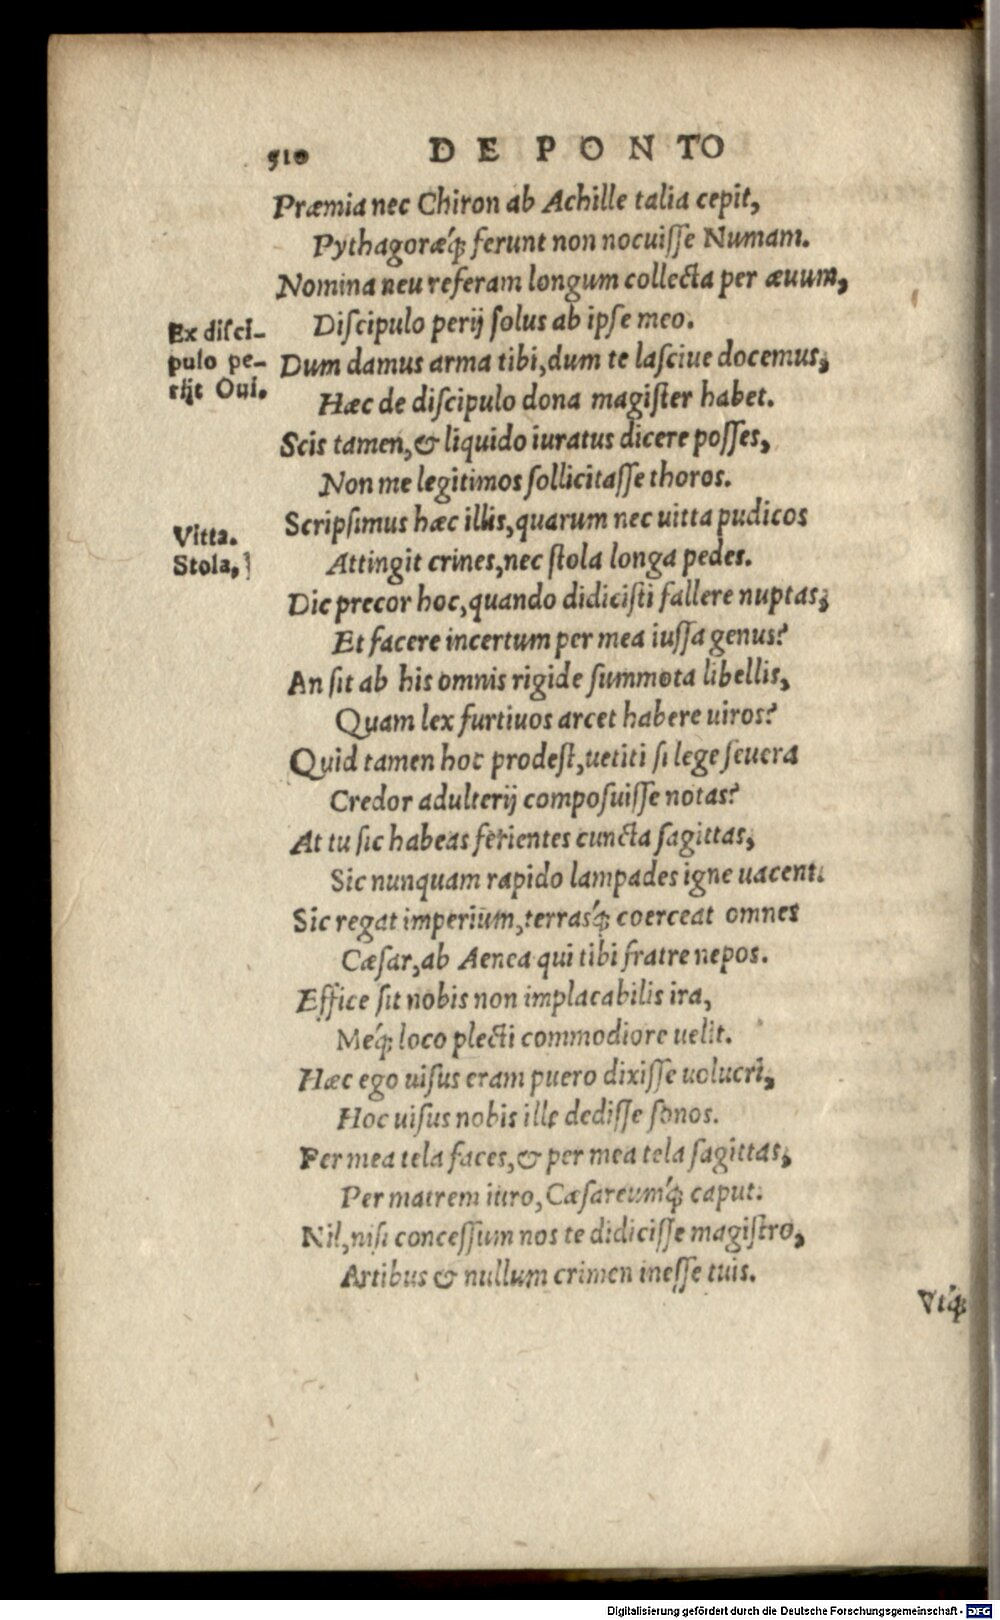 510 DE PONTO
Præmia nec Chiron ab Achille talia cepit,
Pythagoræq́; ferunt non nocuiſſe Numam.
Nomina neu referam longum collecta per æuum,
Diſcipulo perij ſolus ab ipſe meo.
Ex diſci-
pulo pe-
rijt Oui.
Dum damus arma tibi, dum te laſciue docemus;
Hæc de diſcipulo dona magiſter habet.
Scis tamen, & liquido iuratus dicere poſſes,
Non me legitimos ſollicitaſſe thoros.
Scripſimus hæc illis, quarum nec uitta pudicos
Vitta.
Stola,
Attingit crines, nec ſtola longa pedes.
Dic precor hoc, quando didiciſti fallere nuptas;
Et facere incertum per mea iuſſa genus?
An ſit ab his omnis rigide ſummota libellis,
Quam lex furtiuos arcet habere uiros?
Quid tamen hoc prodeſt, uetiti ſi lege ſeuera
Credor adulterij compoſuiſſe notas?
At tu ſic habeas ferientes cuncta ſagittas,
Sic nunquam rapido lampades igne uacent.
Sic regat imperium, terrasq́; coerceat omnes
Cæſar, ab Aenea qui tibi fratre nepos.
Effice ſit nobis non implacabilis ira,
Meq́; loco plecti commodiore uelit.
Hæc ego uiſus eram puero dixiſſe uolucri,
Hoc uiſus nobis ille dediſſe ſonos.
Per mea tela faces, & per mea tela ſagittas,
Per matrem iuro, Cæſareumq́; caput.
Nil, niſi conceſſum nos te didiciſſe magiſtro,
Artibus & nullum crimen ineſſe tuis.
Vtq́;
Digitalisierung gefördert durch die Deutsche Forschungsgemeinschaft - DFG